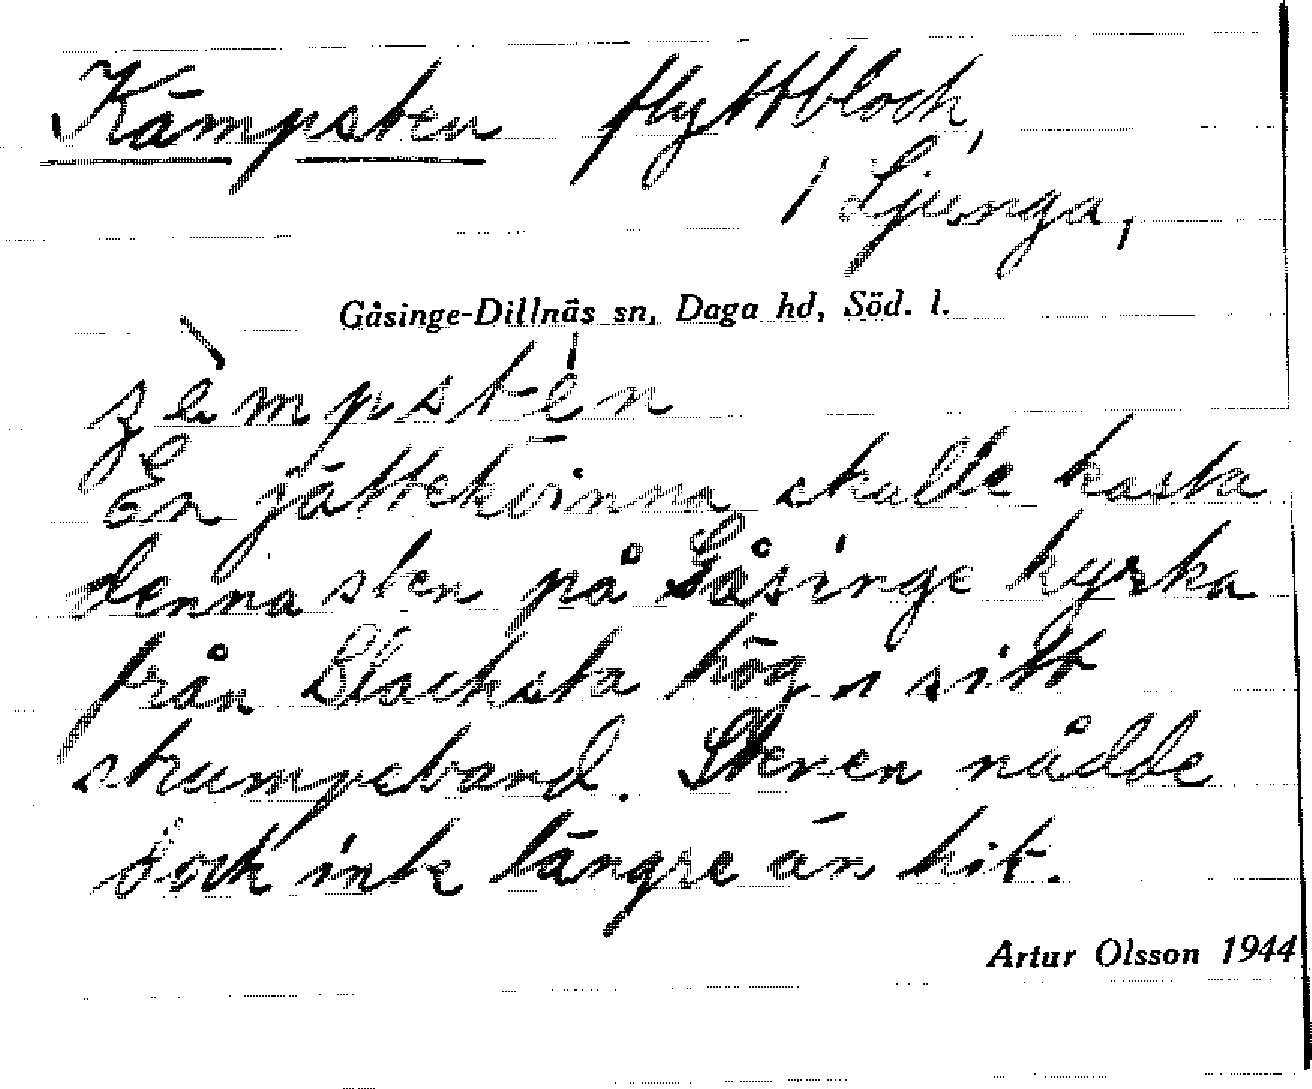 Kämpsten flyttblock,
i Ljunga,
Gåsinge-Dillnäs sn, Daga hd, Söd. l.
En jättekvinna skulle kasta
denna sten på Gåsinge kyrka
från Blacksta hög n sitt
strumpeband. Stenen nådde
dock inte längre än hit.
Artur Olsson 1944